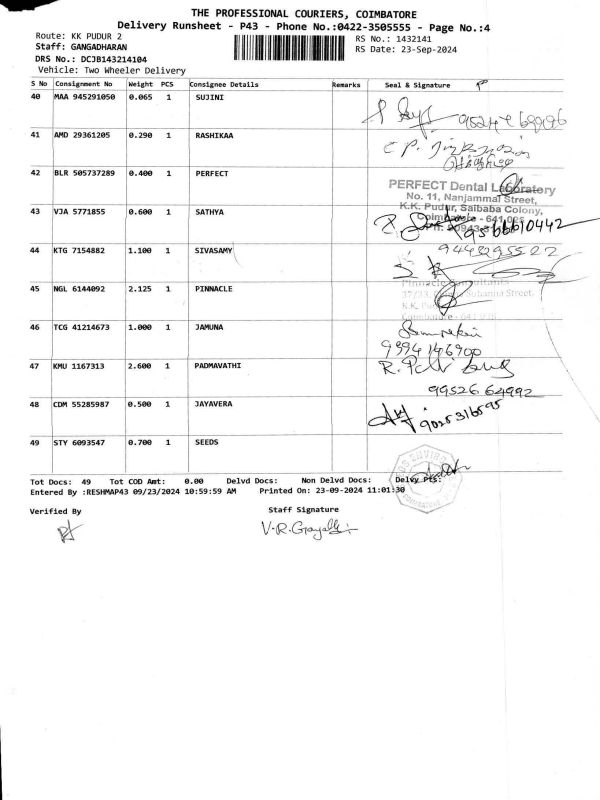 THE PROFESSIONAL COURIERS, COIMBATORE
Delivery Runsheet - P43 - Phone No.:0422-3505555 - Page No.:4
Route: KK PUDUR 2 RS No.: 1432141
Staff: GANGADHARAN RS Date: 23-Sep-2024
DRS No.: DCJB143214104
Vehicle: Two Wheeler Delivery
S No Consignment No Weight PCS Consignee Details Remarks Seal & Signature
40 MAA 945291050 0.065 1 SUJINI
41 AMD 29361205 0.290 1 RASHIKAA
42 BLR 505737289 0.400 1 PERFECT
PERFECT Dental Laboratory
No. 11, Nanjammal Street,
K.K. Pudur, Saibaba Colony,
43 VJA 5771855 0.600 1 SATHYA
Coimbatore - 641
9566610442
44 KTG 7154882 1.100 1 SIVASAMY
9448295522
45 NGL 6144092 2.125 1 PINNACLE
Pinnacle
Street,
46 TCG 41214673 1.000 1 JAMUNA
9994146900
47 KMU 1167313 2.600 1 PADMAVATHI
99526 64992
48 CDM 55285987 0.500 1 JAYAVERA
9025316595
49 STY 6093547 0.700 1 SEEDS
Tot Docs: 49 Tot COD Amt: 0.00 Delvd Docs: Non Delvd Docs: Delvy Pts:
Entered By :RESHMAP43 09/23/2024 10:59:59 AM Printed On: 23-09-2024 11:01:30
Verified By Staff Signature